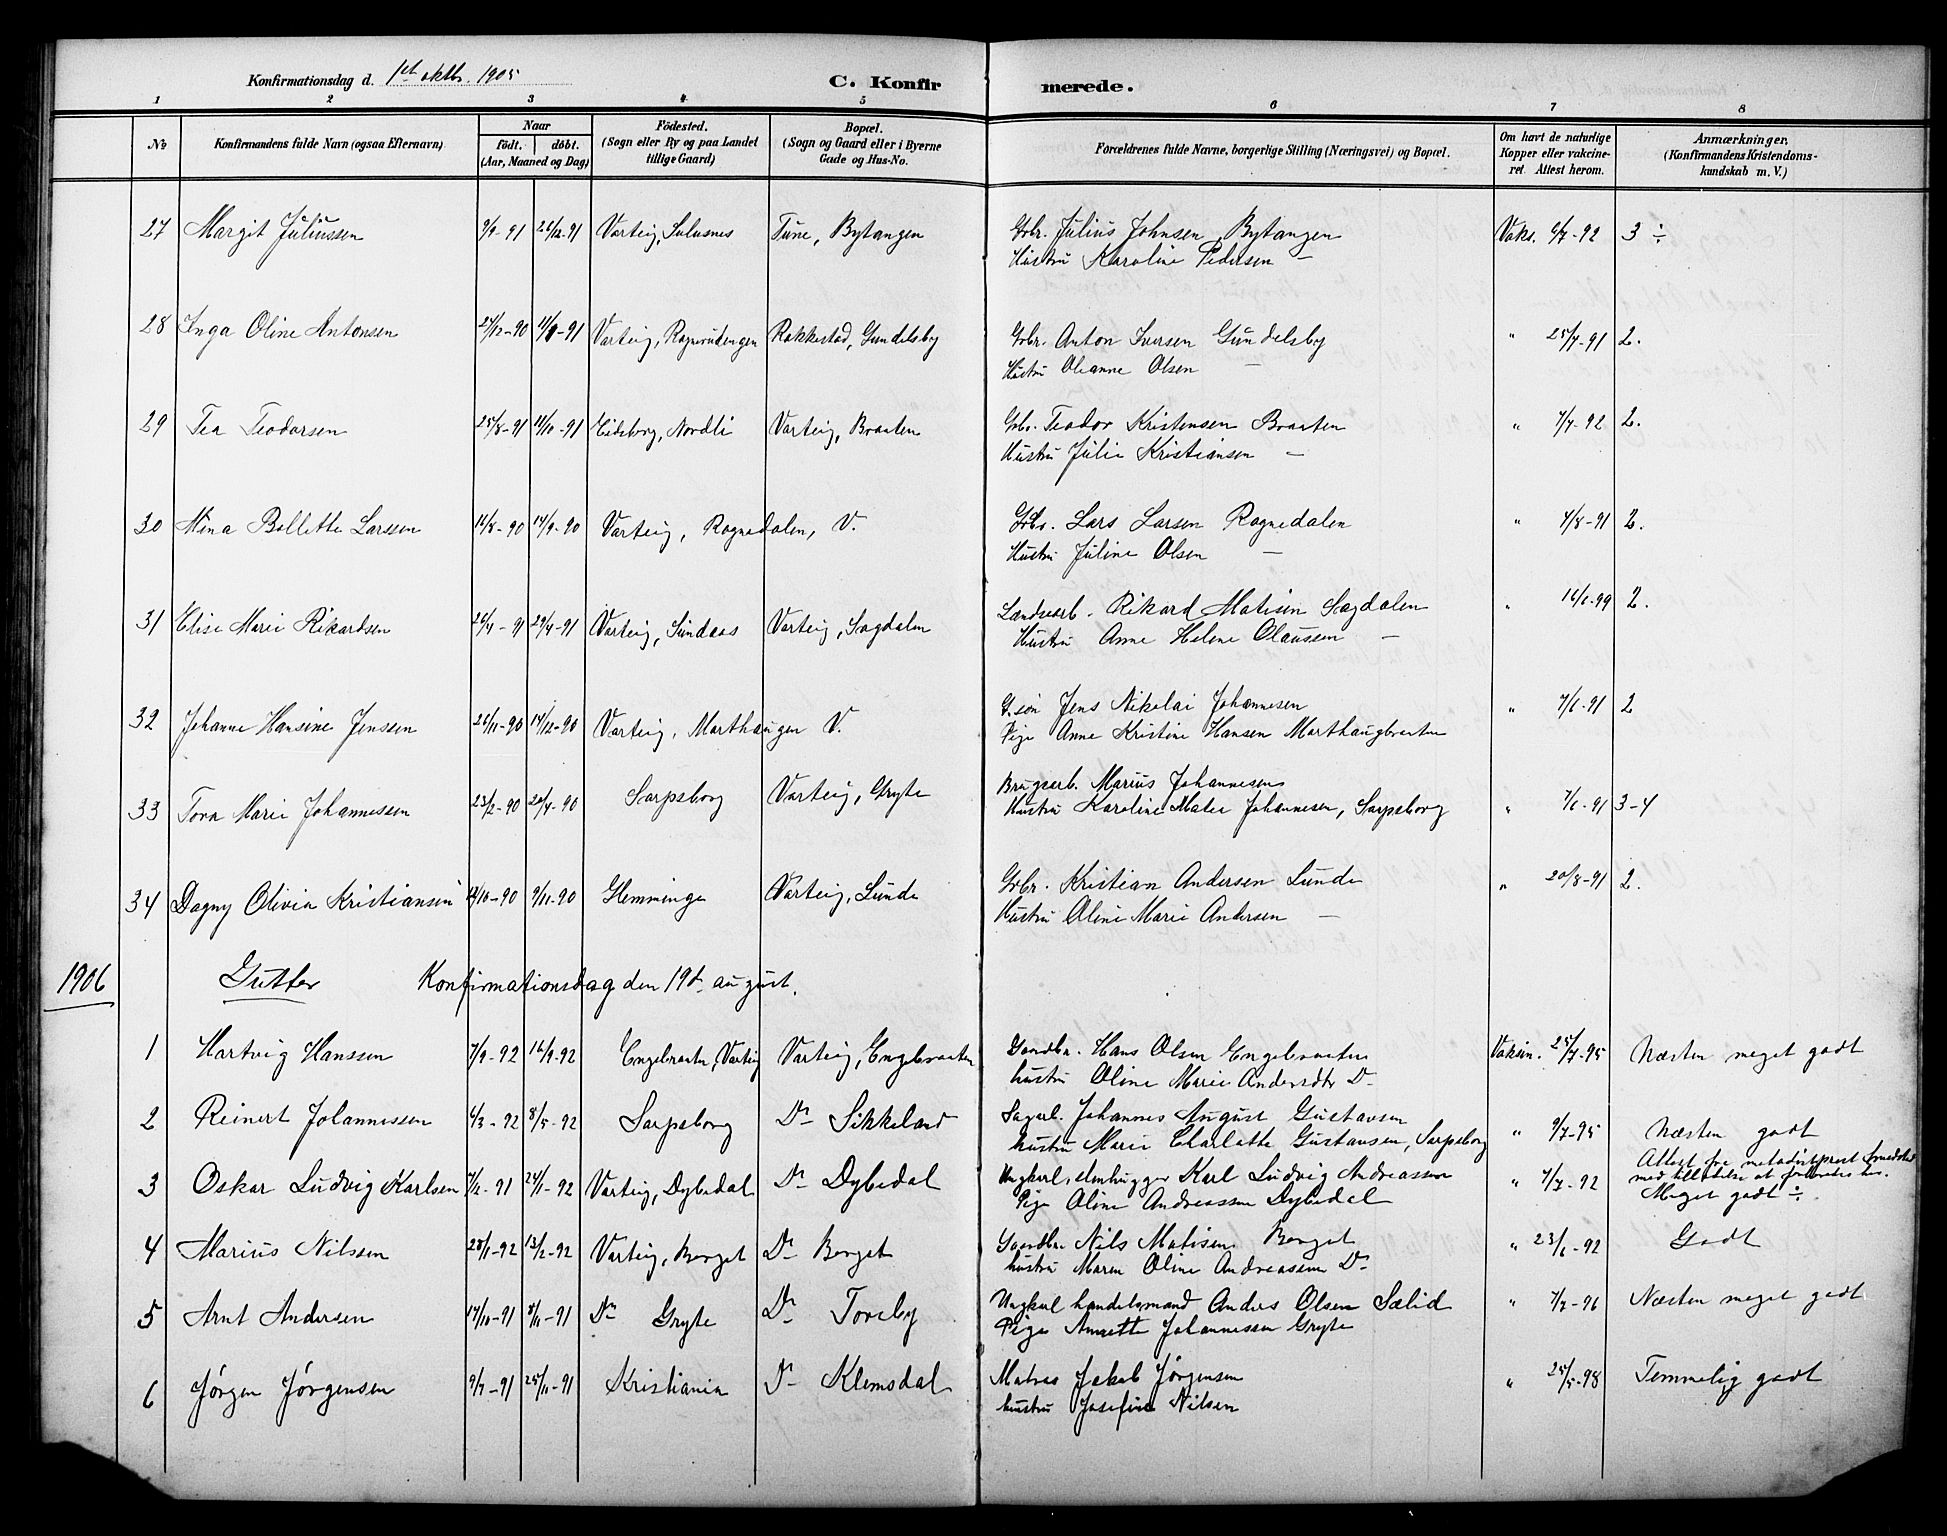 Konfirmationsdag d. 1st oktbr. 1905 C. Konfir merede.
1 2 3 4 5 6 7 8
No Konfirmandens fulde Navn (ogsaa Efternavn) Naar födt. döbt. (Aar, Maaned og Dag) Födested. (Sogn eller By og paa Landet tillige Gaard) Bopæl. (Sogn og Gaard eller i Byerne Gade og Hus-No. Forældrenes fulde Navne, borgerlige Stilling (Næringsvei) og Bopæl. Om havt de naturlige Kopper eller vakcineret. Attest herom. Anmærkninger. (Konfirmandens Kristendomskundskab m. V.)
27 Margit Juliussen 9/9-91 26/12-91 Varteig, Tune, Bytangen Grbr. Julius Johnsen, Bytangen Vaks. 6/7-92 3 ÷
Hustru Karoline Pedersen —
28 Inga Oline Antonsen 27/12-90 Varteig, Rakkestad, Gundelsby Grbr. Anton Iversen Gundelsby " 25/7-91 2.
Hustru Olianne Olsen —
29 Tea Teodorsen 25/8-91 11/10-91 Eidsberg, Nordli Varteig, Braaten Grbr. Teodor Kristensen Braaten " 7/7-92 2.
Hustru Julie Kristiansen —
30 Mina Bollette Larssen 14/9-90 Varteig, Rognedalen, V. Grbr. Lars Larsen Rognedalen " 4/8-91 2.
Hustru Juline Olsen —
31 Elise Marie Rikardsen 29/4-91 Varteig, Sundaas Varteig, Sagdalen Landvarb. Rikard Matisen Sagdalen " 16/6-99 2.
Hustru Anne Helene Olaussen —
32 Johanne Hansine Jenssen 26/11-90 14/12-90 Varteig, Marthaugen V. G.søn Jens Nikolai Johannesen " 7/6-91 2
Pige Anne Kristine Hansen Marthaugbraaten
33 Tora Marie Johannessen 23/2-90 20/4-90 Sarpsborg Varteig, Gryte Brugsarb. Marius Johannesens " 7/6-91 3-4
Hustru Karoline Matea Johannesen, Sarpsborg
34 Dagny Olivia Kristiansen 9/11-90 Glemminge Varteig, Lunde Grbr. Kristian Andersen Lunde " 20/8-91 2.
Hustru Oline Marie Andersen —
1906 Gutter Konfirmationsdag den 19d. august.
1 Hartvig Hanssen 7/9-92 16/9-92 Engebraaten, Varteig Varteig, Engebraaten Gaardbr. Hans Olsen Engebraaten Vaksin. 25/7-95 Næsten meget godt
hustru Oline Marie Andersdtr Do
2 Reinert Johannessen 6/3-92 8/5-92 Sarpsborg Do Sikkeland Sagarb. Johannes August Gustavsen " 9/7-95 Næsten godt
hustru Marie Charlotte Gustavsen, Sarpsborg
3 Oskar Ludvig Karlsen 7/12-91 24/1-92 Varteig, Dybedal Do Dybedal Ungkarl, stenhugger Karl Ludvig Andreassen " 7/7-92 Attest fra metodistprest
Pige Oline Andreassen Dybedal med tilladelse at
Meget godt ÷
4 Marius Nilssen 28/1-92 13/2-92 Varteig, Berget Do Berget Gaardbr. Nils Matisen Berget " 23/6-92 Godt
hustru Maren Oline Andreassen Do
5 Arnt Andersen 17/10-91 8/11-91 Do Gryte Do Toreby Ungkarl handelsmand Anders Olsen Sælid " 7/7-96 Næsten meget godt
Pige Annette Johannessen Gryte
6 Jørgen Jørgensen 9/7-91 25/11-91 Kristiania Do Klemsdal Matros Jakob Jørgensen " 25/5-98 Temmelig godt
hustru Josefine Nilsen